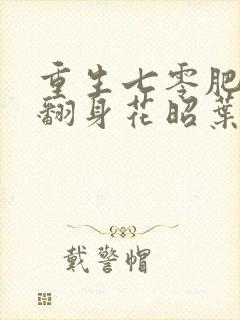 重生七零肥
翻身花昭葉
戴警帽